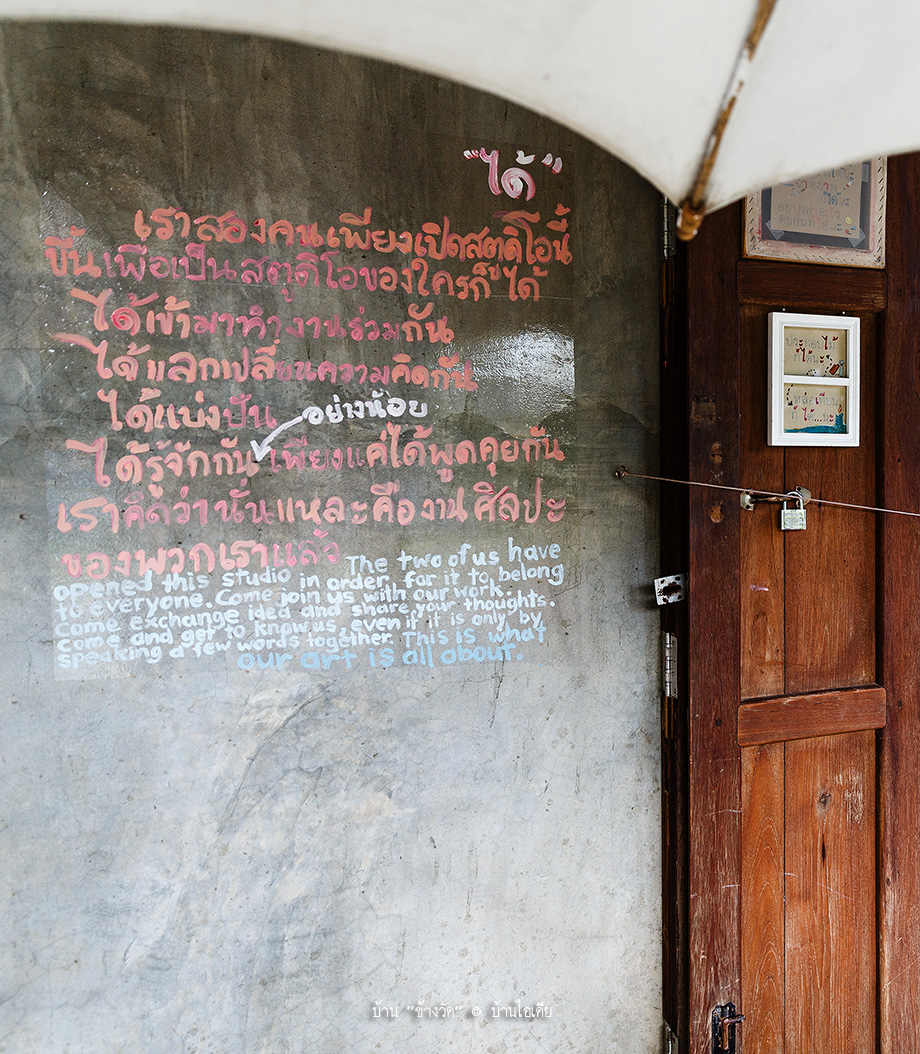 "ได้"
เราสองคนเพียงเปิดสตูดิโอนี้
ขึ้นเพื่อเป็นสตูดิโอของใครก็ได้
ได้เข้ามาทำงานร่วมกัน
ได้แลกเปลี่ยนความคิดกัน
ได้แบ่งปัน
อย่างน้อย
ได้รู้จักกัน เพียงแค่ได้พูดคุยกัน
เราคิดว่านั่นแหละคืองานศิลปะ
ของพวกเราแล้ว The two of us have
opened this studio in order for it to belong
to everyone. Come join us with our work.
Come exchange idea and share your thoughts.
Come and get to know us, even if it is only by
speaking a few words together. This is what
our art is all about.
ประกอบไม้
ก็ได้นะ
หล่อเทียน
ก็ได้...นะ
บ้าน "ข้างวัด" © บ้านไอเดีย